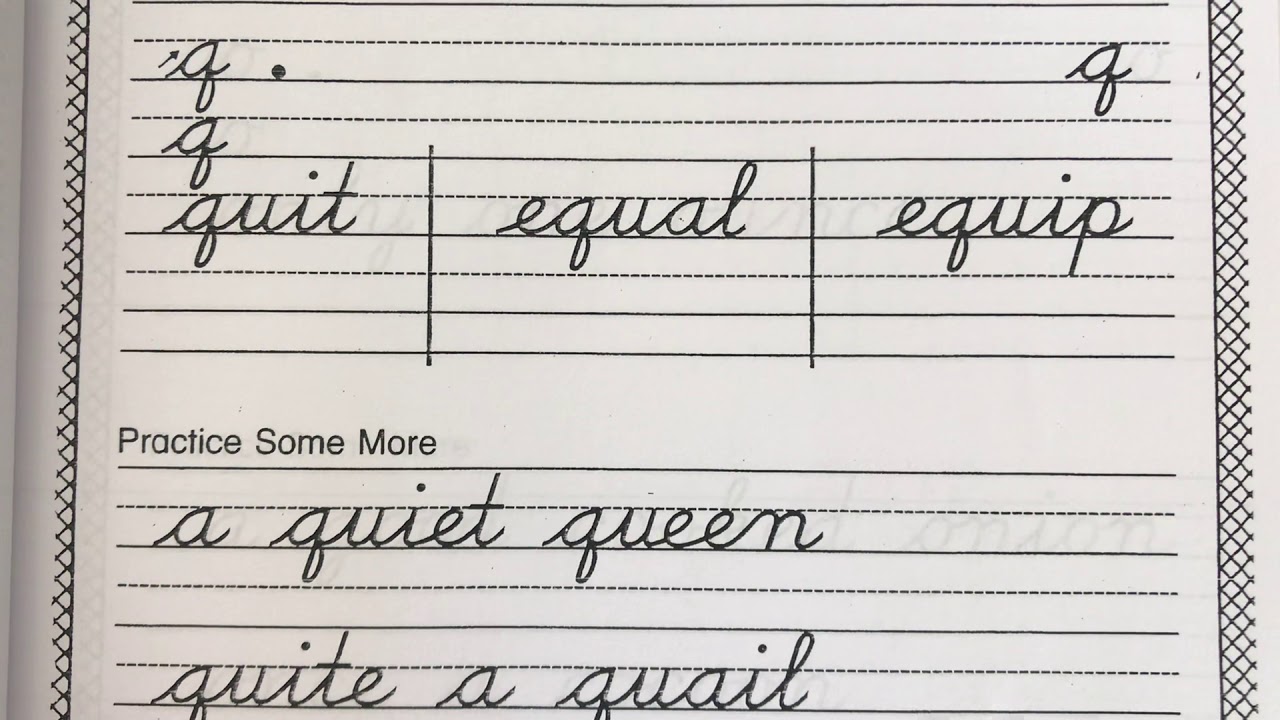 q . q
q
quit equal equip
Practice Some More
a quiet queen
quite a quail